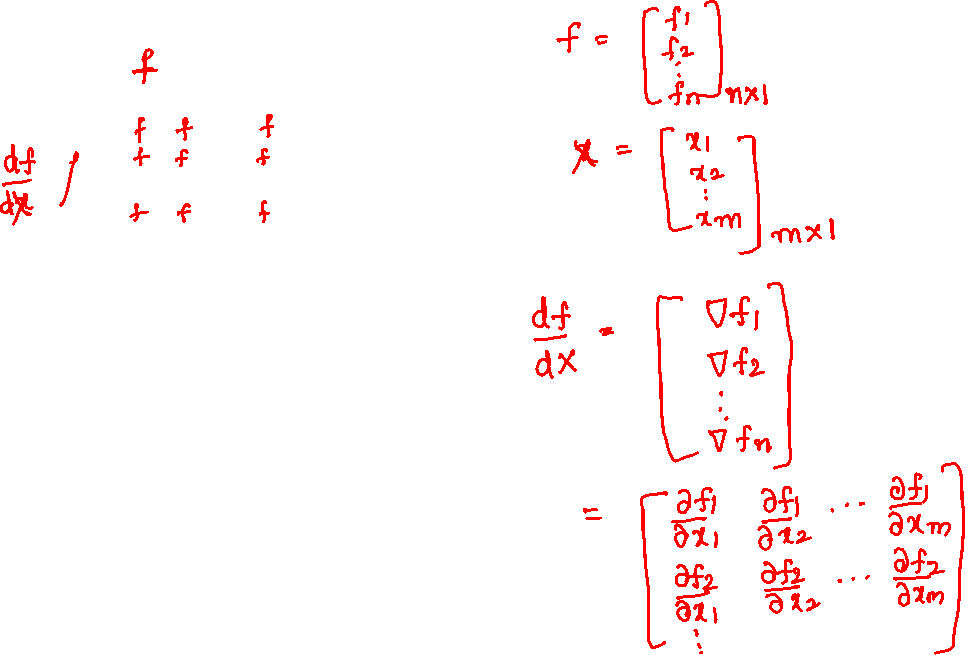 f
f f f
f f f
df/dx /
f f f
f = [f1
f2
⋮
fn] n×1
x = [x1
x2
⋮
xm] m×1
df/dx = [∇f1
∇f2
⋮
∇fn]
= [∂f1/∂x1 ∂f1/∂x2 ⋯ ∂f1/∂xm
∂f2/∂x1 ∂f2/∂x2 ⋯ ∂f2/∂xm
⋮]